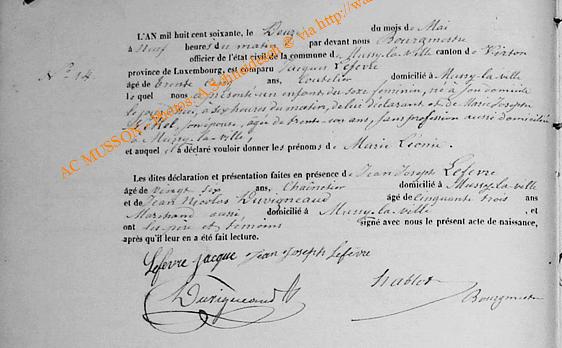 L'AN mil huit cent soixante, le Douze du mois de Mai
à Neuf heures du matin par devant nous Bourgmestre
officier de l'état civil de la commune de Mussy-la-ville canton de Virton
N° 14. province de Luxembourg, est comparu Jacques Lefèvre
âgé de trente ans, domicilié à Mussy-la-ville
Lequel nous a présenté un enfant du sexe féminin, né à son domicile
à six heures du matin, de lui déclarant et de Marie Joseph
son épouse, âgée de trente-six ans, sans profession aussi domiciliée
à Mussy-la-ville,
et auquel il a déclaré vouloir donner les prénoms de Marie Léonie.
Les dites déclaration et présentation faites en présence de Jean Joseph Lefèvre
âgé de vingt six ans, domicilié à Mussy-la-ville
et de Jean Nicolas Duvigneaud âgé de cinquante trois ans
Marchand aussi, domicilié à Mussy-la-ville, et
ont les père et témoins signé avec nous le présent acte de naissance,
après qu'il leur en a été fait lecture.
Lefevre jacque Jean Joseph Lefèvre
Duvigneaud
Bourgmestre
AC MUSSON Photos A.S. @ via http://www